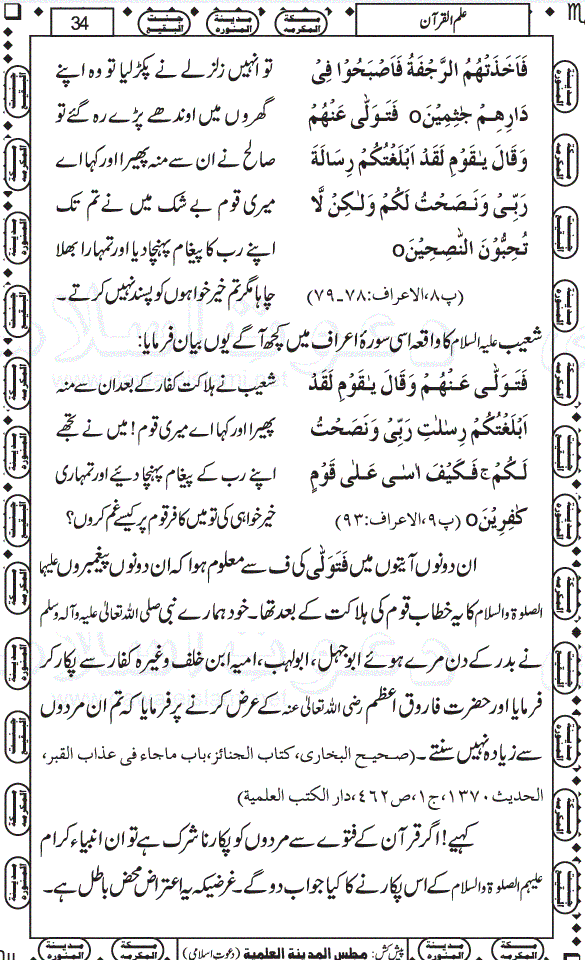 علم القرآن
34
فَاَخَذَتْهُمُ الرَّجْفَةُ فَاَصْبَحُوْا فِیْ
دَارِهِمْ جٰثِمِیْنَ o فَتَوَلّٰی عَنْهُمْ
وَقَالَ یٰقَوْمِ لَقَدْ اَبْلَغْتُکُمْ رِسَالَةَ
رَبِّیْ وَنَصَحْتُ لَکُمْ وَلٰکِنْ لَّا
تُحِبُّوْنَ النّٰصِحِیْنَ o
(پ۸،الاعراف:۷۸۔۷۹)
تو انہیں زلزلے نے پکڑلیا تو وہ اپنے
گھروں میں اوندھے پڑے رہ گئے تو
صالح نے ان سے منہ پھیرا اور کہا اے
میری قوم بے شک میں نے تم تک
اپنے رب کا پیغام پہنچادیا اور تمہارا بھلا
چاہا مگر تم خیر خواہوں کو پسند نہیں کرتے ۔
شعیب علیہ السلام کا واقعہ اسی سورۂ اعراف میں کچھ آگے یوں بیان فرمایا:
فَتَوَلّٰی عَنْهُمْ وَقَالَ یٰقَوْمِ لَقَدْ
اَبْلَغْتُکُمْ رِسٰلٰتِ رَبِّیْ وَنَصَحْتُ
لَکُمْ ج فَکَیْفَ اٰسٰی عَلٰی قَوْمٍ
کٰفِرِیْنَ o (پ۹،الاعراف:۹۳)
شعیب نے ہلاکت کفار کے بعد ان سے منہ
پھیرا اور کہا اے میری قوم! میں نے تجھے
اپنے رب کے پیغام پہنچا دیئے اور تمہاری
خیر خواہی کی تو میں کافر قوم پر کیسے غم کروں؟
ان دونوں آیتوں میں فَتَوَلّٰی کی ف سے معلوم ہوا کہ ان دونوں پیغمبروں علیہما
الصلوۃ والسلام کا یہ خطاب قوم کی ہلاکت کے بعد تھا۔ خود ہمارے نبی صلی اللہ تعالیٰ علیہ وآلہ وسلم
نے بدر کے دن مرے ہوئے ابوجہل، ابولہب، امیہ ابن خلف وغیرہ کفار سے پکار کر
فرمایا اور حضرت فاروق اعظم رضی اللہ تعالیٰ عنہ کے عرض کرنے پر فرمایا کہ تم ان مردوں
سے زیادہ نہیں سنتے ۔ (صحیح البخاری، کتاب الجنائز، باب ماجاء فی عذاب القبر،
الحدیث ۱۳۷۰، ج۱، ص۴۶۲، دار الکتب العلمیة)
کہیے! اگر قرآن کے فتوے سے مردوں کو پکارنا شرک ہے تو ان انبیاء کرام
علیہم الصلوۃ والسلام کے اس پکارنے کا کیا جواب دو گے۔ غرضیکہ یہ اعتراض محض باطل ہے۔
پیش کش: مجلس المدینة العلمیة (دعوت اسلامی)